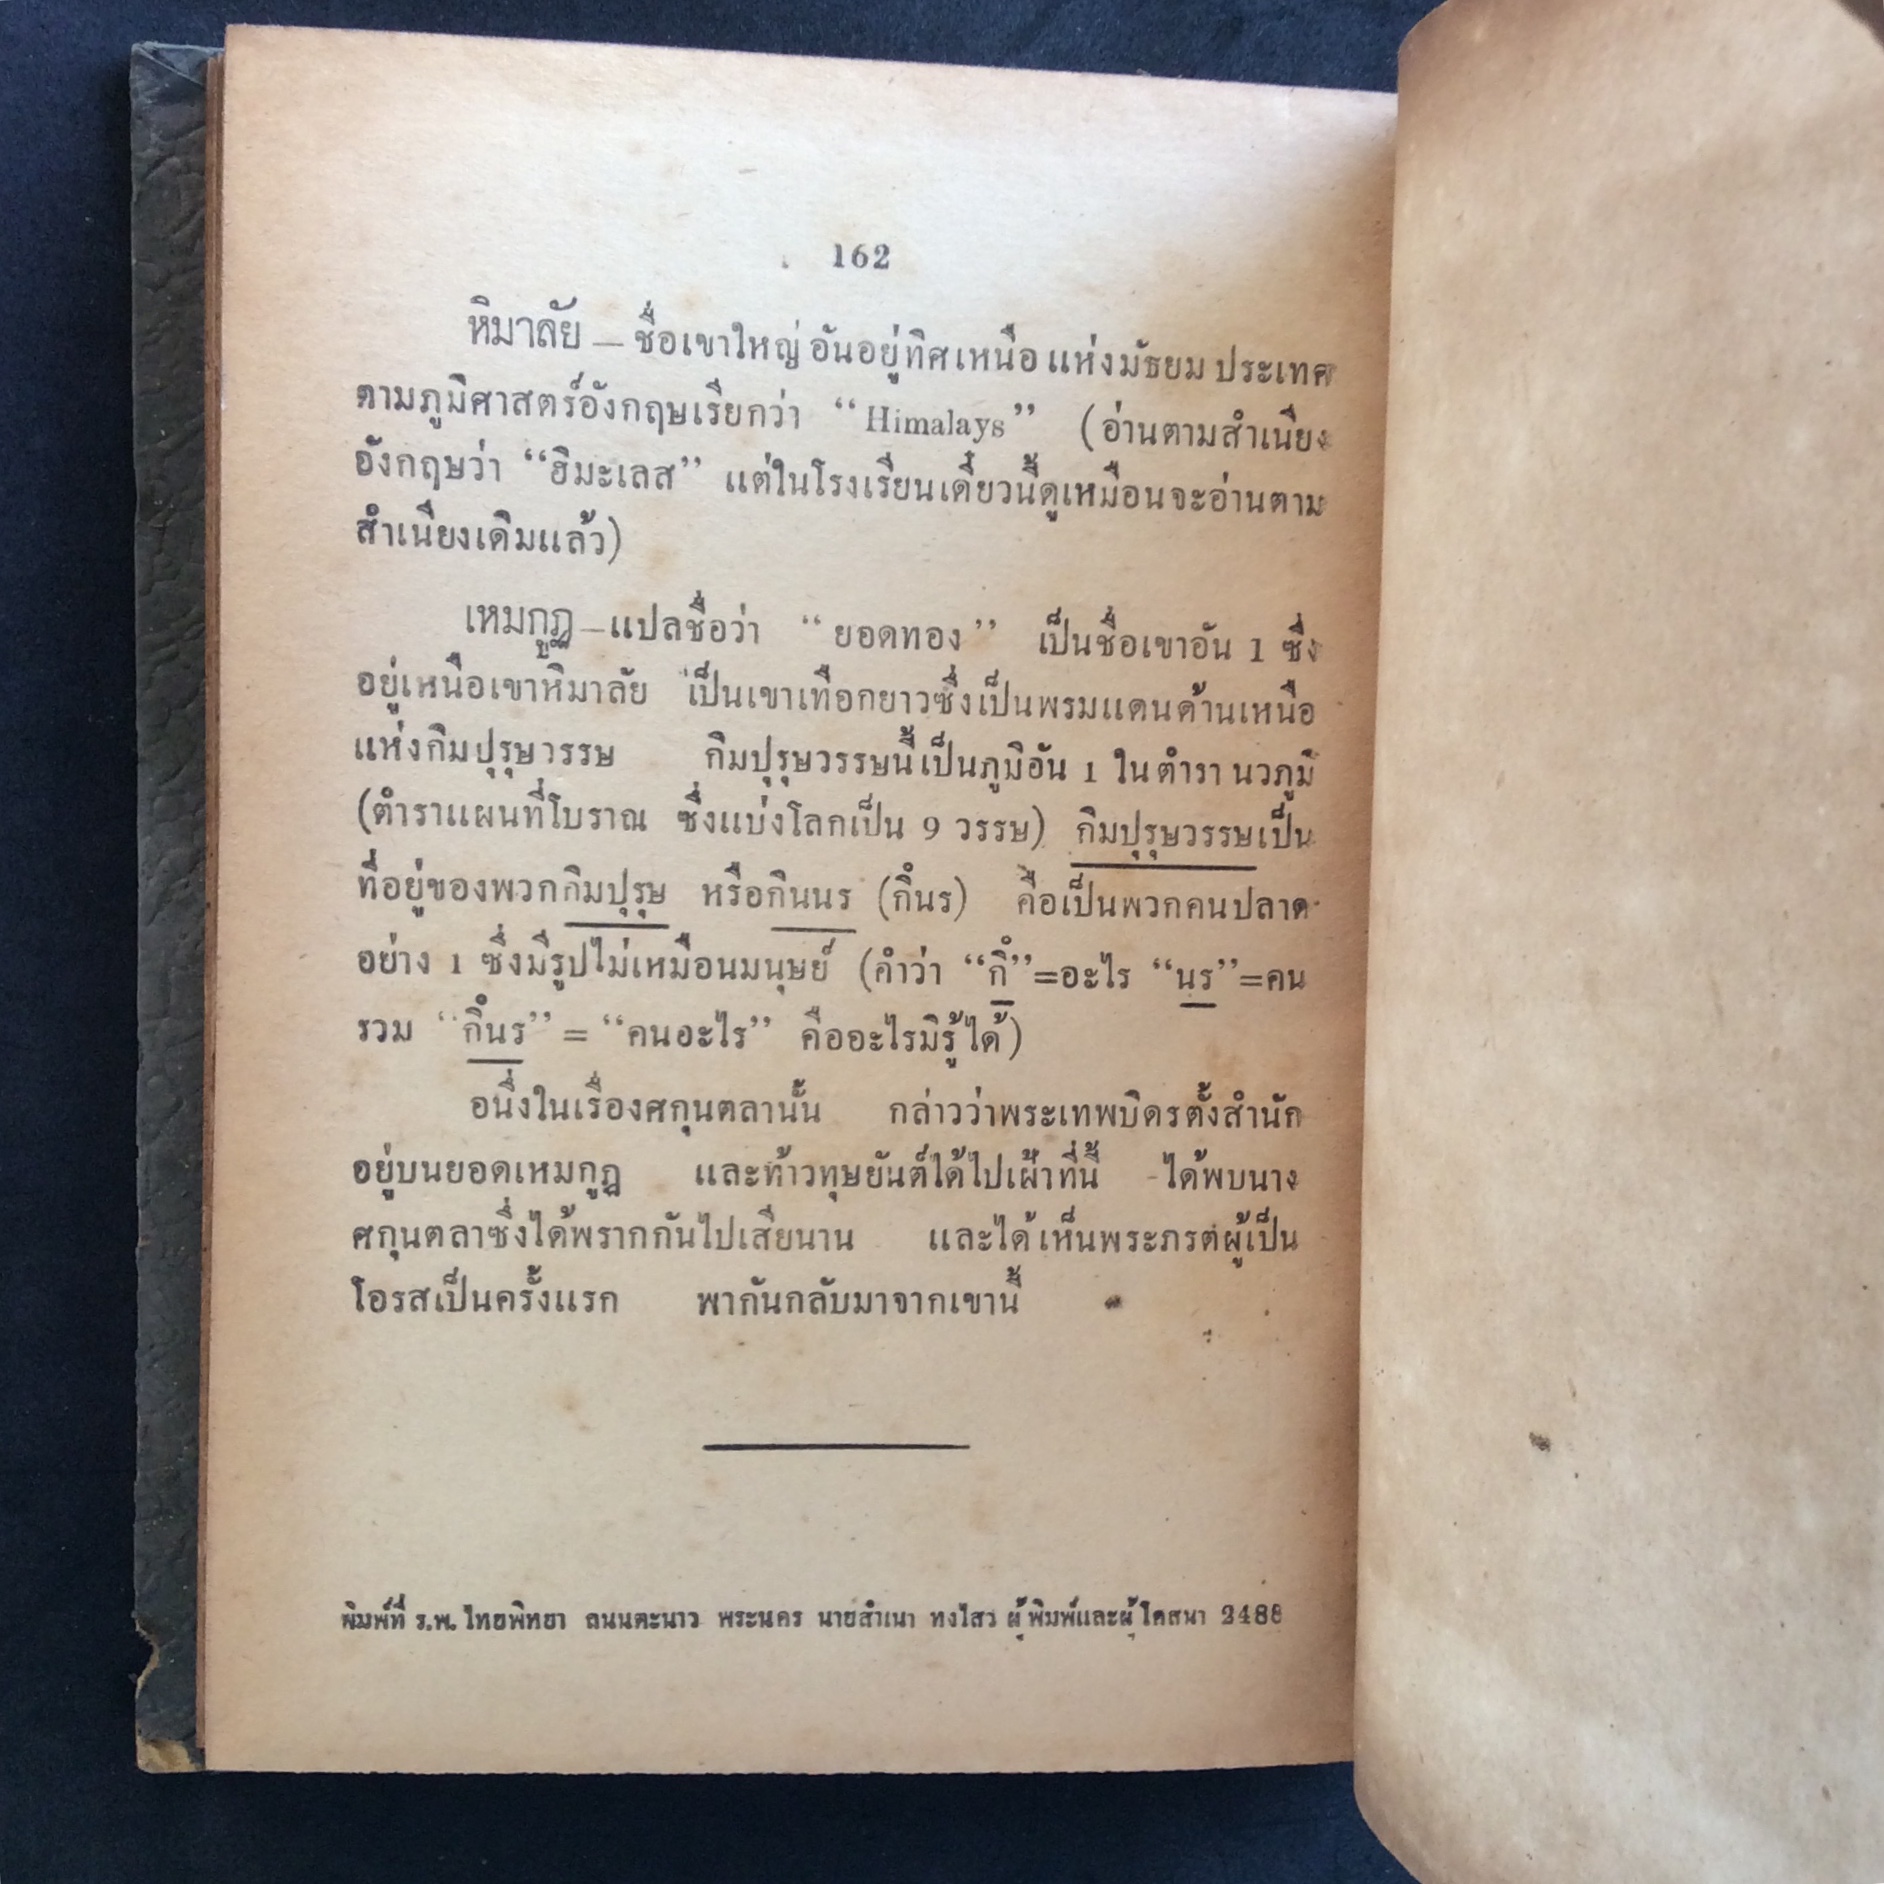 162
หิมาลัย — ชื่อเขาใหญ่อันอยู่ทิศเหนือแห่งมัธยมประเทศ
ตามภูมิศาสตร์อังกฤษเรียกว่า “Himalays” (อ่านตามสำเนียง
อังกฤษว่า “ฮิมะเลส” แต่ในโรงเรียนเดี๋ยวนี้ดูเหมือนจะอ่านตาม
สำเนียงเดิมแล้ว)
เหมกูฏ—แปลชื่อว่า “ยอดทอง” เป็นชื่อเขาอัน 1 ซึ่ง
อยู่เหนือเขาหิมาลัย เป็นเขาเทือกยาวซึ่งเป็นพรมแดนด้านเหนือ
แห่งกิมปุรุษวรรษ กิมปุรุษวรรษนี้เป็นภูมิอัน 1 ในตำรานวภูมิ
(ตำราแผนที่โบราณ ซึ่งแบ่งโลกเป็น 9 วรรษ) กิมปุรุษวรรษเป็น
ที่อยู่ของพวกกิมปุรุษ หรือกินนร (กึนร) คือเป็นพวกคนปลาด
อย่าง 1 ซึ่งมีรูปไม่เหมือนมนุษย์ (คำว่า “กึ”=อะไร “นร”=คน
รวม “กึนร” = “คนอะไร” คืออะไรมิรู้ได้)
อนึ่งในเรื่องศกุนตลานั้น กล่าวว่าพระเทพบิดรตั้งสำนัก
อยู่บนยอดเหมกูฏ และท้าวทุษยันต์ได้ไปเฝ้าที่นี้ ได้พบนาง
ศกุนตลาซึ่งได้พรากกันไปเสียนาน และได้เห็นพระภรตผู้เป็น
โอรสเป็นครั้งแรก พากันกลับมาจากเขานี้
พิมพ์ที่ ร.พ. ไทยพิทยา ถนนตะนาว พระนคร นายสำเนา ทงไสว ผู้พิมพ์และผู้โฆสนา 2488